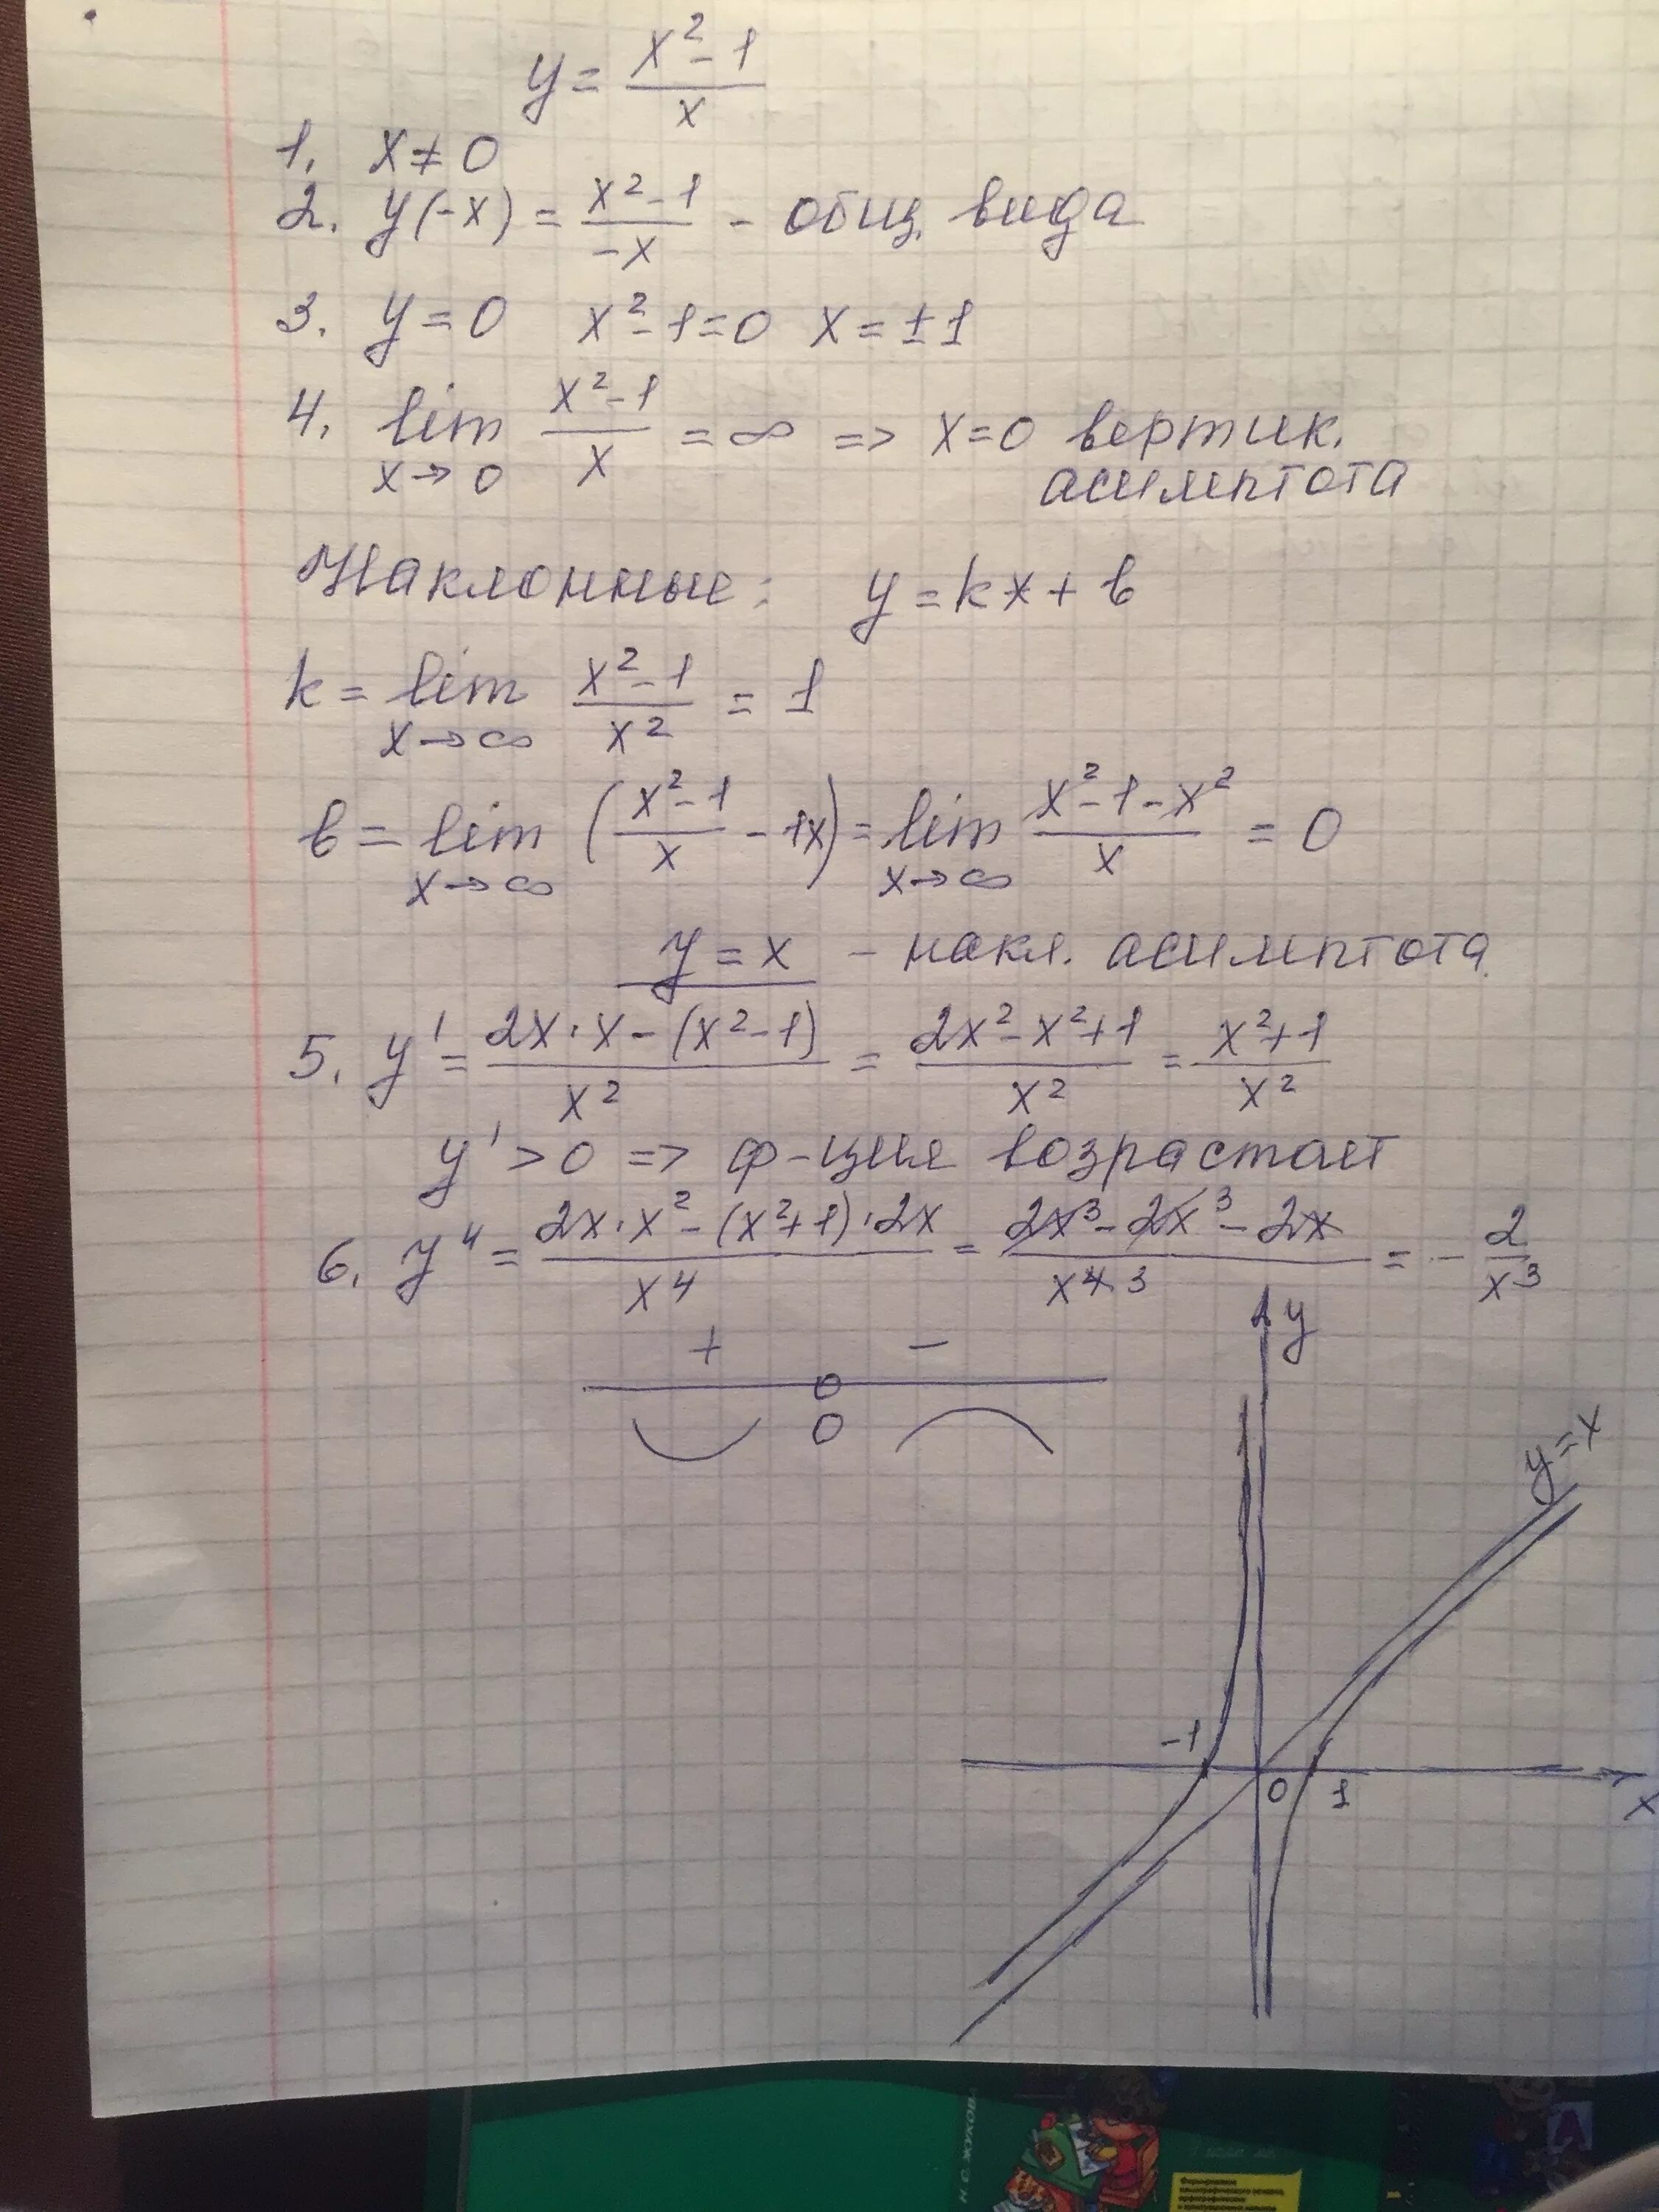 y = (x² - 1)/x
1. x ≠ 0
2. y(-x) = (x² - 1)/(-x) - общ. вида
3. y = 0 x² - 1 = 0 x = ± 1
4. lim x→0 (x² - 1)/x = ∞ => x = 0 вертик.
асимптота
Наклонные: y = kx + b
k = lim x→∞ (x² - 1)/x² = 1
b = lim x→∞ ((x² - 1)/x - 1x) = lim x→∞ (x² - 1 - x²)/x = 0
y = x - накл. асимптота
5. y' = (2x · x - (x² - 1))/x² = (2x² - x² + 1)/x² = (x² + 1)/x²
y' > 0 => ф-ция возрастает
6. y'' = (2x · x² - (x² + 1) · 2x)/x⁴ = (2x³ - 2x³ - 2x)/x⁴ ³ = - 2/x³
+ -
0
y
y = x
-1
0 1
x
Н.З. ЖУКОВА